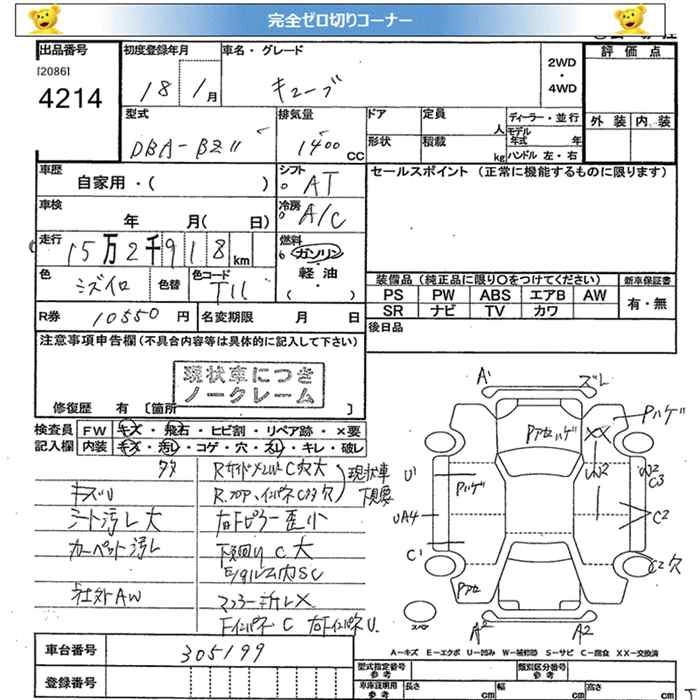 完全ゼロ切りコーナー
出品番号
[2086]
4214
初度登録年月
18 1月
車名・グレード
キューブ
2WD
・
4WD
評価点
外装 内装
型式
DBA-BZ11
排気量
1400 CC
ドア
定員
人
形状
積載
kg
ディーラー・並行
モデル
年式 年
ハンドル 左・右
車歴
自家用・( )
シフト
AT
セールスポイント (正常に機能するものに限ります)
車検
年 月( 日)
冷房
A/C
走行
15万2千918km
燃料
ガソリン
・
軽油
( )
色
ミズイロ
色替
色コード
T11
装備品(純正品に限り○をつけてください)
新車保証書
PS PW ABS エアB AW
SR ナビ TV カワ
有・無
R券 10550円
名変期限 月 日
後日品
注意事項申告欄(不具合内容等は具体的に記入して下さい)
現状車につき
ノークレーム
修復歴 有 [箇所 ]
検査員 FW キズ・飛石・ヒビ割・リペア跡・×要
記入欄 内装 キズ・汚れ・コゲ・穴・スレ・キレ・破レ
キズU
シート汚レ大
カーペット汚レ
社外AW
R.サイドメンバーC穴大
R.フロア、インパネC03穴
現状車
下見要
右Fピラー歪小
下廻りC大
E/gルーム内SC
マフラー新レX
FインパネC 右FインパネU.
A'
ズレ
Pハゲ
Pアセハゲ
XX
U'
Pハゲ
W2
W2
C3
UA4
C2
C'
Pアセ
C2穴
スペア
A2
A2
A-キズ E-エクボ U-凹み W-補修跡 S-サビ C-腐食 XX-交換済
車台番号
305199
登録番号
型式指定番号
参考
類別区分番号
参考
車庫証明用
参考
長さ
cm
幅
cm
高さ
cm